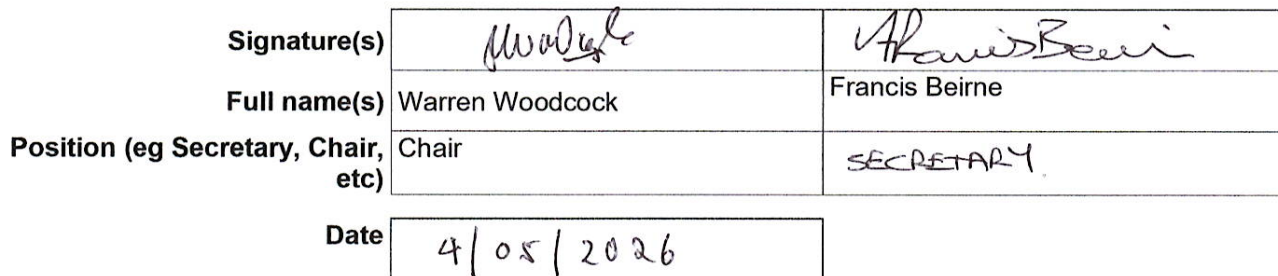 Signature(s)
Full name(s) Warren Woodcock Francis Beirne
Position (eg Secretary, Chair, etc) Chair SECRETARY
Date 4/05/2026